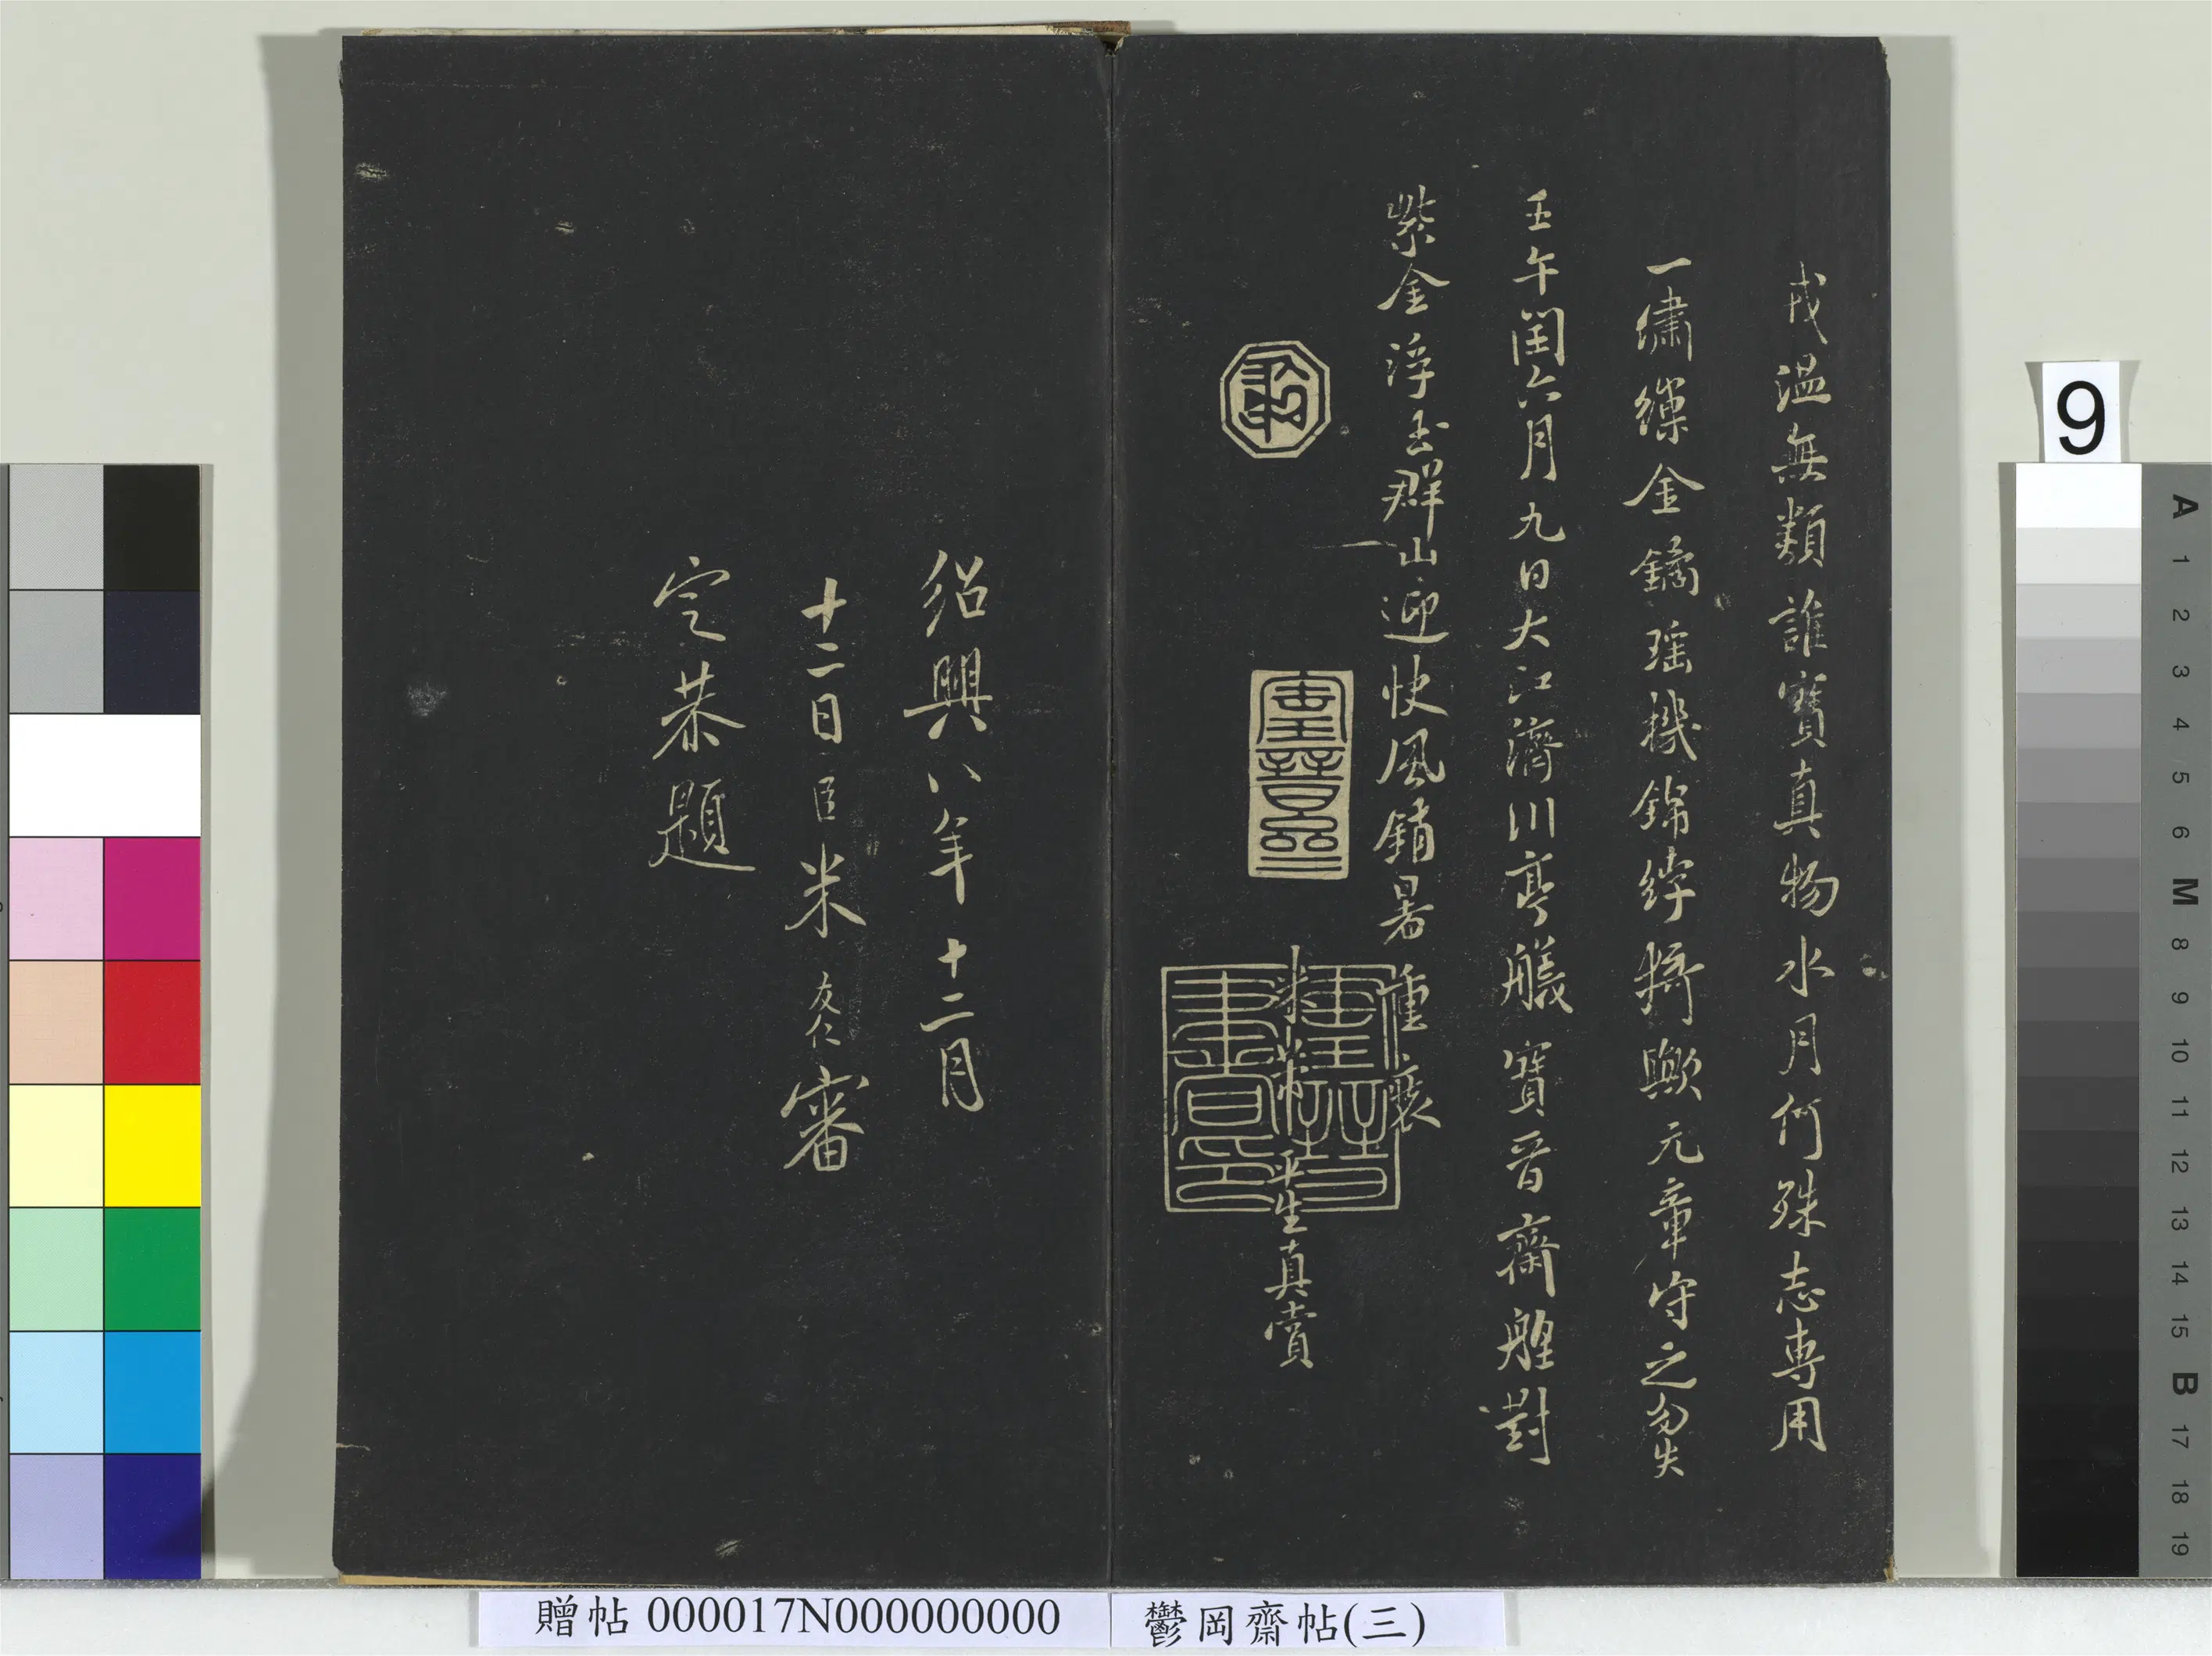 戎溫無類誰寶真物水月何殊志專用
一繡繅金鐍瑶機錦綍猗歟元章守之勿失
壬午閏六月九日大江濟川亭艤寶晉齋艎對
紫金浮玉群山迎快風銷暑重裝
米芾平生真賞
寶晉
紹興八年十二月
十二日臣米友仁審
定恭題
贈帖 000017N000000000
鬱岡齋帖(三)
9
A
1
2
3
4
5
6
M
8
9
10
11
12
13
14
15
B
17
18
19